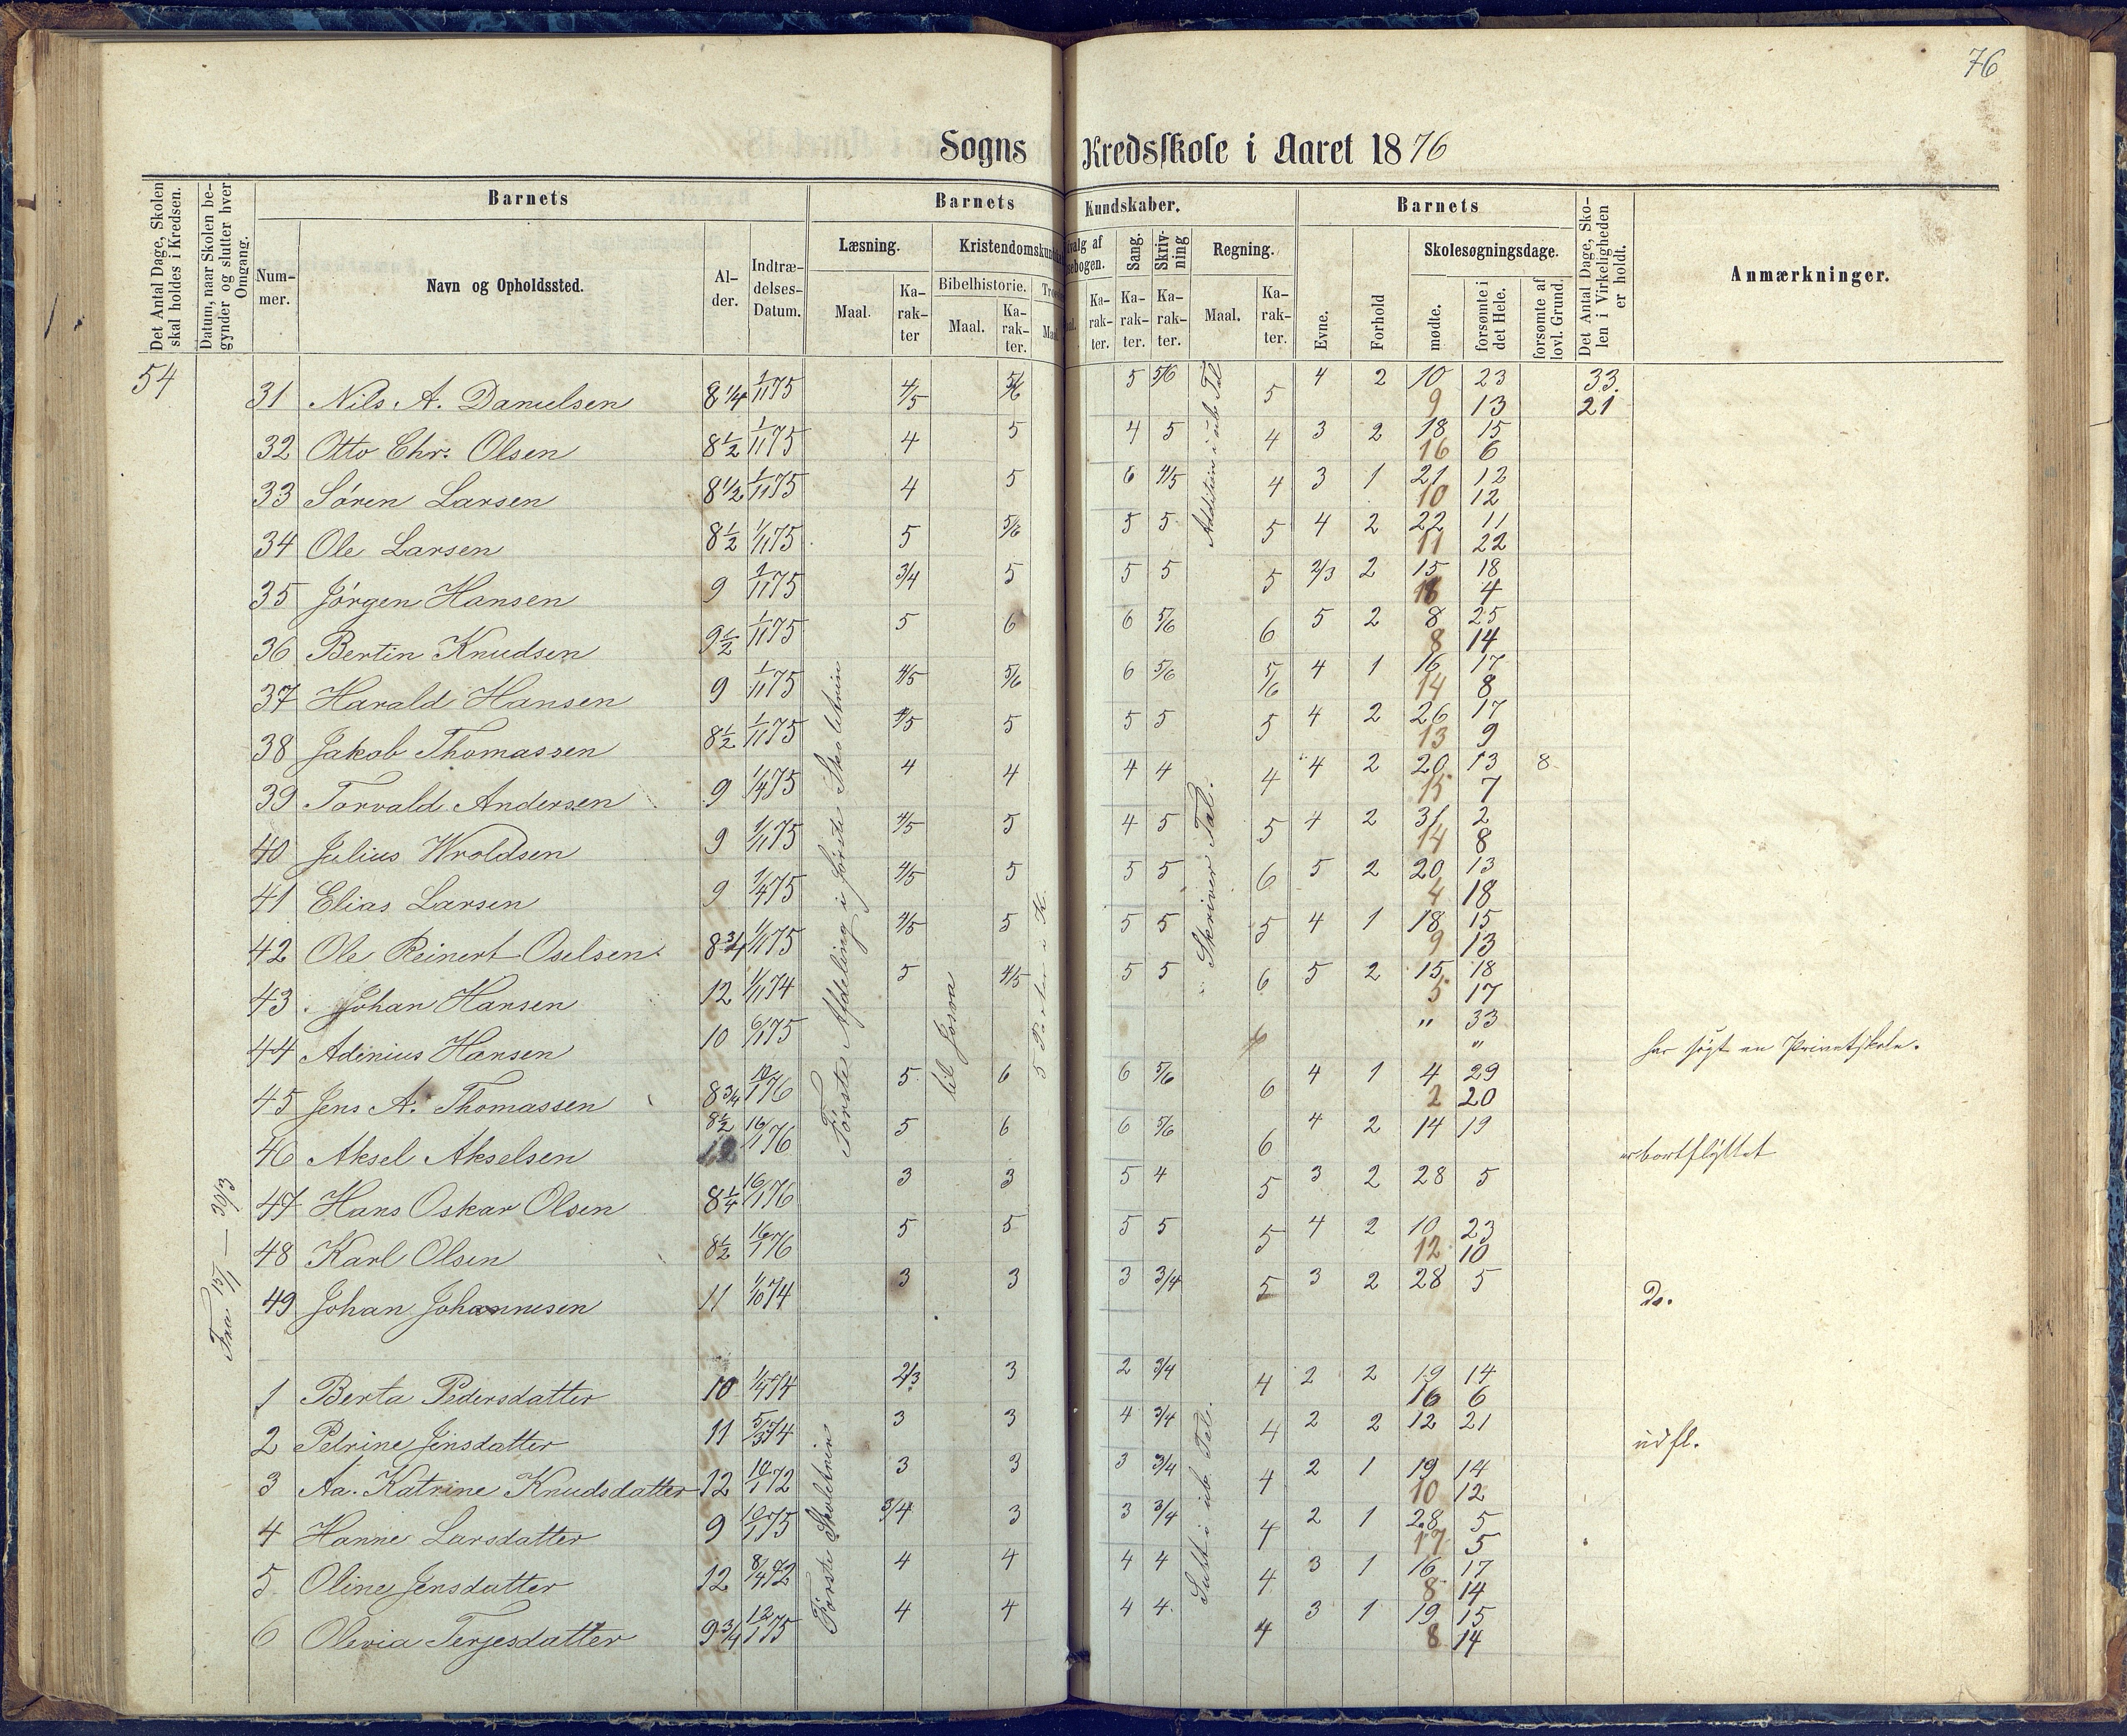 76
Sogns Kredsskole i Aaret 1876
Det Antal Dage, Skolen skal holdes i Kredsen.
Datum, naar Skolen begynder og slutter hver Omgang.
Barnets
Nummer.
Navn og Opholdssted.
Alder.
Indtrædelses-Datum.
Barnets Kundskaber.
Læsning.
Maal.
Karakter
Bibelhistorie.
Maal.
Karakter.
Sang.
Karakter.
Skrivning
Karakter.
Regning.
Maal.
Karakter.
Barnets
Evne.
Forhold
Skolesøgningsdage.
mødte.
forsømte i det Hele.
forsømte af lovl. Grund.
Det Antal Dage, Skolen i Virkeligheden er holdt.
Anmærkninger.
54
Fra 15/1 — 30/3
Første Afdeling i første Skoletrin
til Josva
Addition i ub. Tal
Skriver Tal.
31 Nils A. Danielsen 8 1/4 1/11 75 4/5 5/6 5 5/6 5 4 2 10 23 33.
9 13 21
32 Otto Chr. Olsen 8 1/2 1/11 75 4 5 4 5 4 3 2 18 15
16 6
33 Søren Larsen 8 1/2 1/11 75 4 5 6 4/5 4 3 1 21 12
10 12
34 Ole Larsen 8 1/2 1/11 75 5 5/6 5 5 5 4 2 22 11
11 22
35 Jørgen Hansen 9 1/11 75 3/4 5 5 5 5 2/3 2 15 18
18 4
36 Bertin Knudsen 9 1/2 1/11 75 5 6 6 5/6 6 5 2 8 25
8 14
37 Harald Hansen 9 1/11 75 4/5 5/6 6 5/6 5/6 4 1 16 17
14 8
38 Jakob Thomassen 8 1/2 1/11 75 4/5 5 5 5 5 4 2 26 17
13 9
39 Torvald Andersen 9 1/4 75 4 4 4 4 4 4 2 20 13 8
15 7
40 Julius Wroldsen 9 1/11 75 4/5 5 4 5 5 4 2 31 2
14 8
41 Elias Larsen 9 1/4 75 4/5 5 5 5 6 5 2 20 13
4 18
42 Ole Reinert Oselsen 8 3/4 1/11 75 4/5 5 5 5 5 4 1 18 15
9 13
43 Johan Hansen 12 1/11 74 5 4/5 5 5 6 5 2 15 18
5 17
44 Adinius Hansen 10 6/1 75 „ 33 har søgt en Privatskole.
„
45 Jens A. Thomassen 8 3/4 10/1 76 5 6 6 5/6 6 4 1 4 29
2 20
46 Aksel Akselsen 8 1/2 16/1 76 5 6 6 5/6 6 4 2 14 19 er bortflyttet
47 Hans Oskar Olsen 8 1/4 16/1 76 3 3 5 4 5 3 2 28 5
48 Karl Olsen 8 1/2 16/1 76 5 5 5 5 5 4 2 10 23
12 10
49 Johan Johannesen 11 1/10 74 3 3 3 3/4 5 3 2 28 5 Do.
Første Skoletrin
Subt. i ub. Tal.
1 Berta Pedersdatter 10 1/4 74 2/3 3 2 3/4 4 2 2 19 14
16 6
2 Petrine Jensdatter 11 5/3 74 3 3 4 3/4 4 2 2 12 21 udfl.
3 Aa. Katrine Knudsdatter 12 10/1 72 3 3 3 3/4 4 2 1 19 14
10 12
4 Hanne Larsdatter 9 10/1 75 3/4 3 3 3/4 4 2 1 28 5
17 5
5 Oline Jensdatter 12 8/4 72 4 4 4 4 4 3 1 16 17
8 14
6 Olevia Terjesdatter 9 3/4 12/1 75 4 4 4 4 4 3 1 19 15
8 14